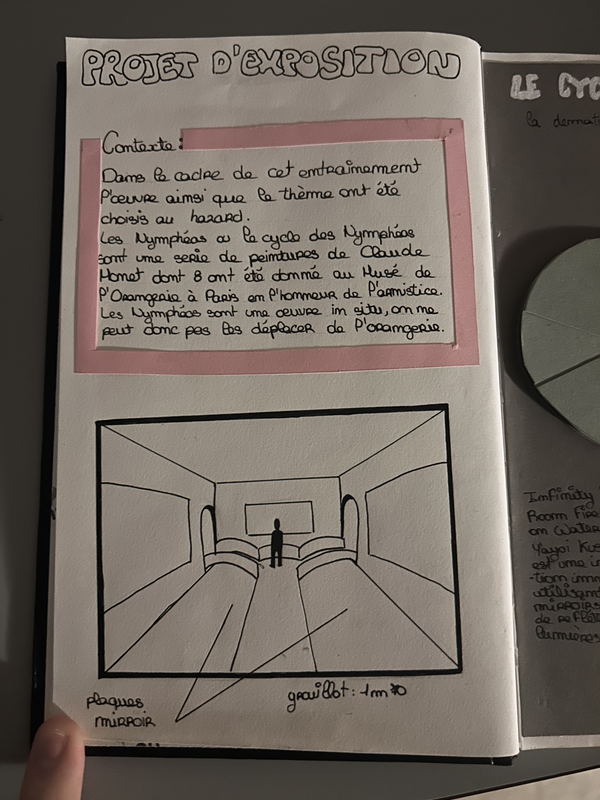 PROJET D'EXPOSITION
Contexte:
Dans le cadre de cet entrainement
l'œuvre ainsi que le thème ont été
choisis au hasard.
Les Nymphéas ou le cycle des Nymphéas
sont une serie de peintures de Claude
Monet dont 8 ont été donné au Musé de
l'Orangerie à Paris en l'honneur de l'armistice.
Les Nymphéas sont une œuvre in situ, on ne
peut donc pas les déplacer de l'orangerie.
plaques
miRROIR
grouillot: 1m70
LE CYC
la
Infinity
Room Fire
on Water
Yayoi Kus
est une in
-tion imm
utilisant
miRROIRS
de reflét
lumières